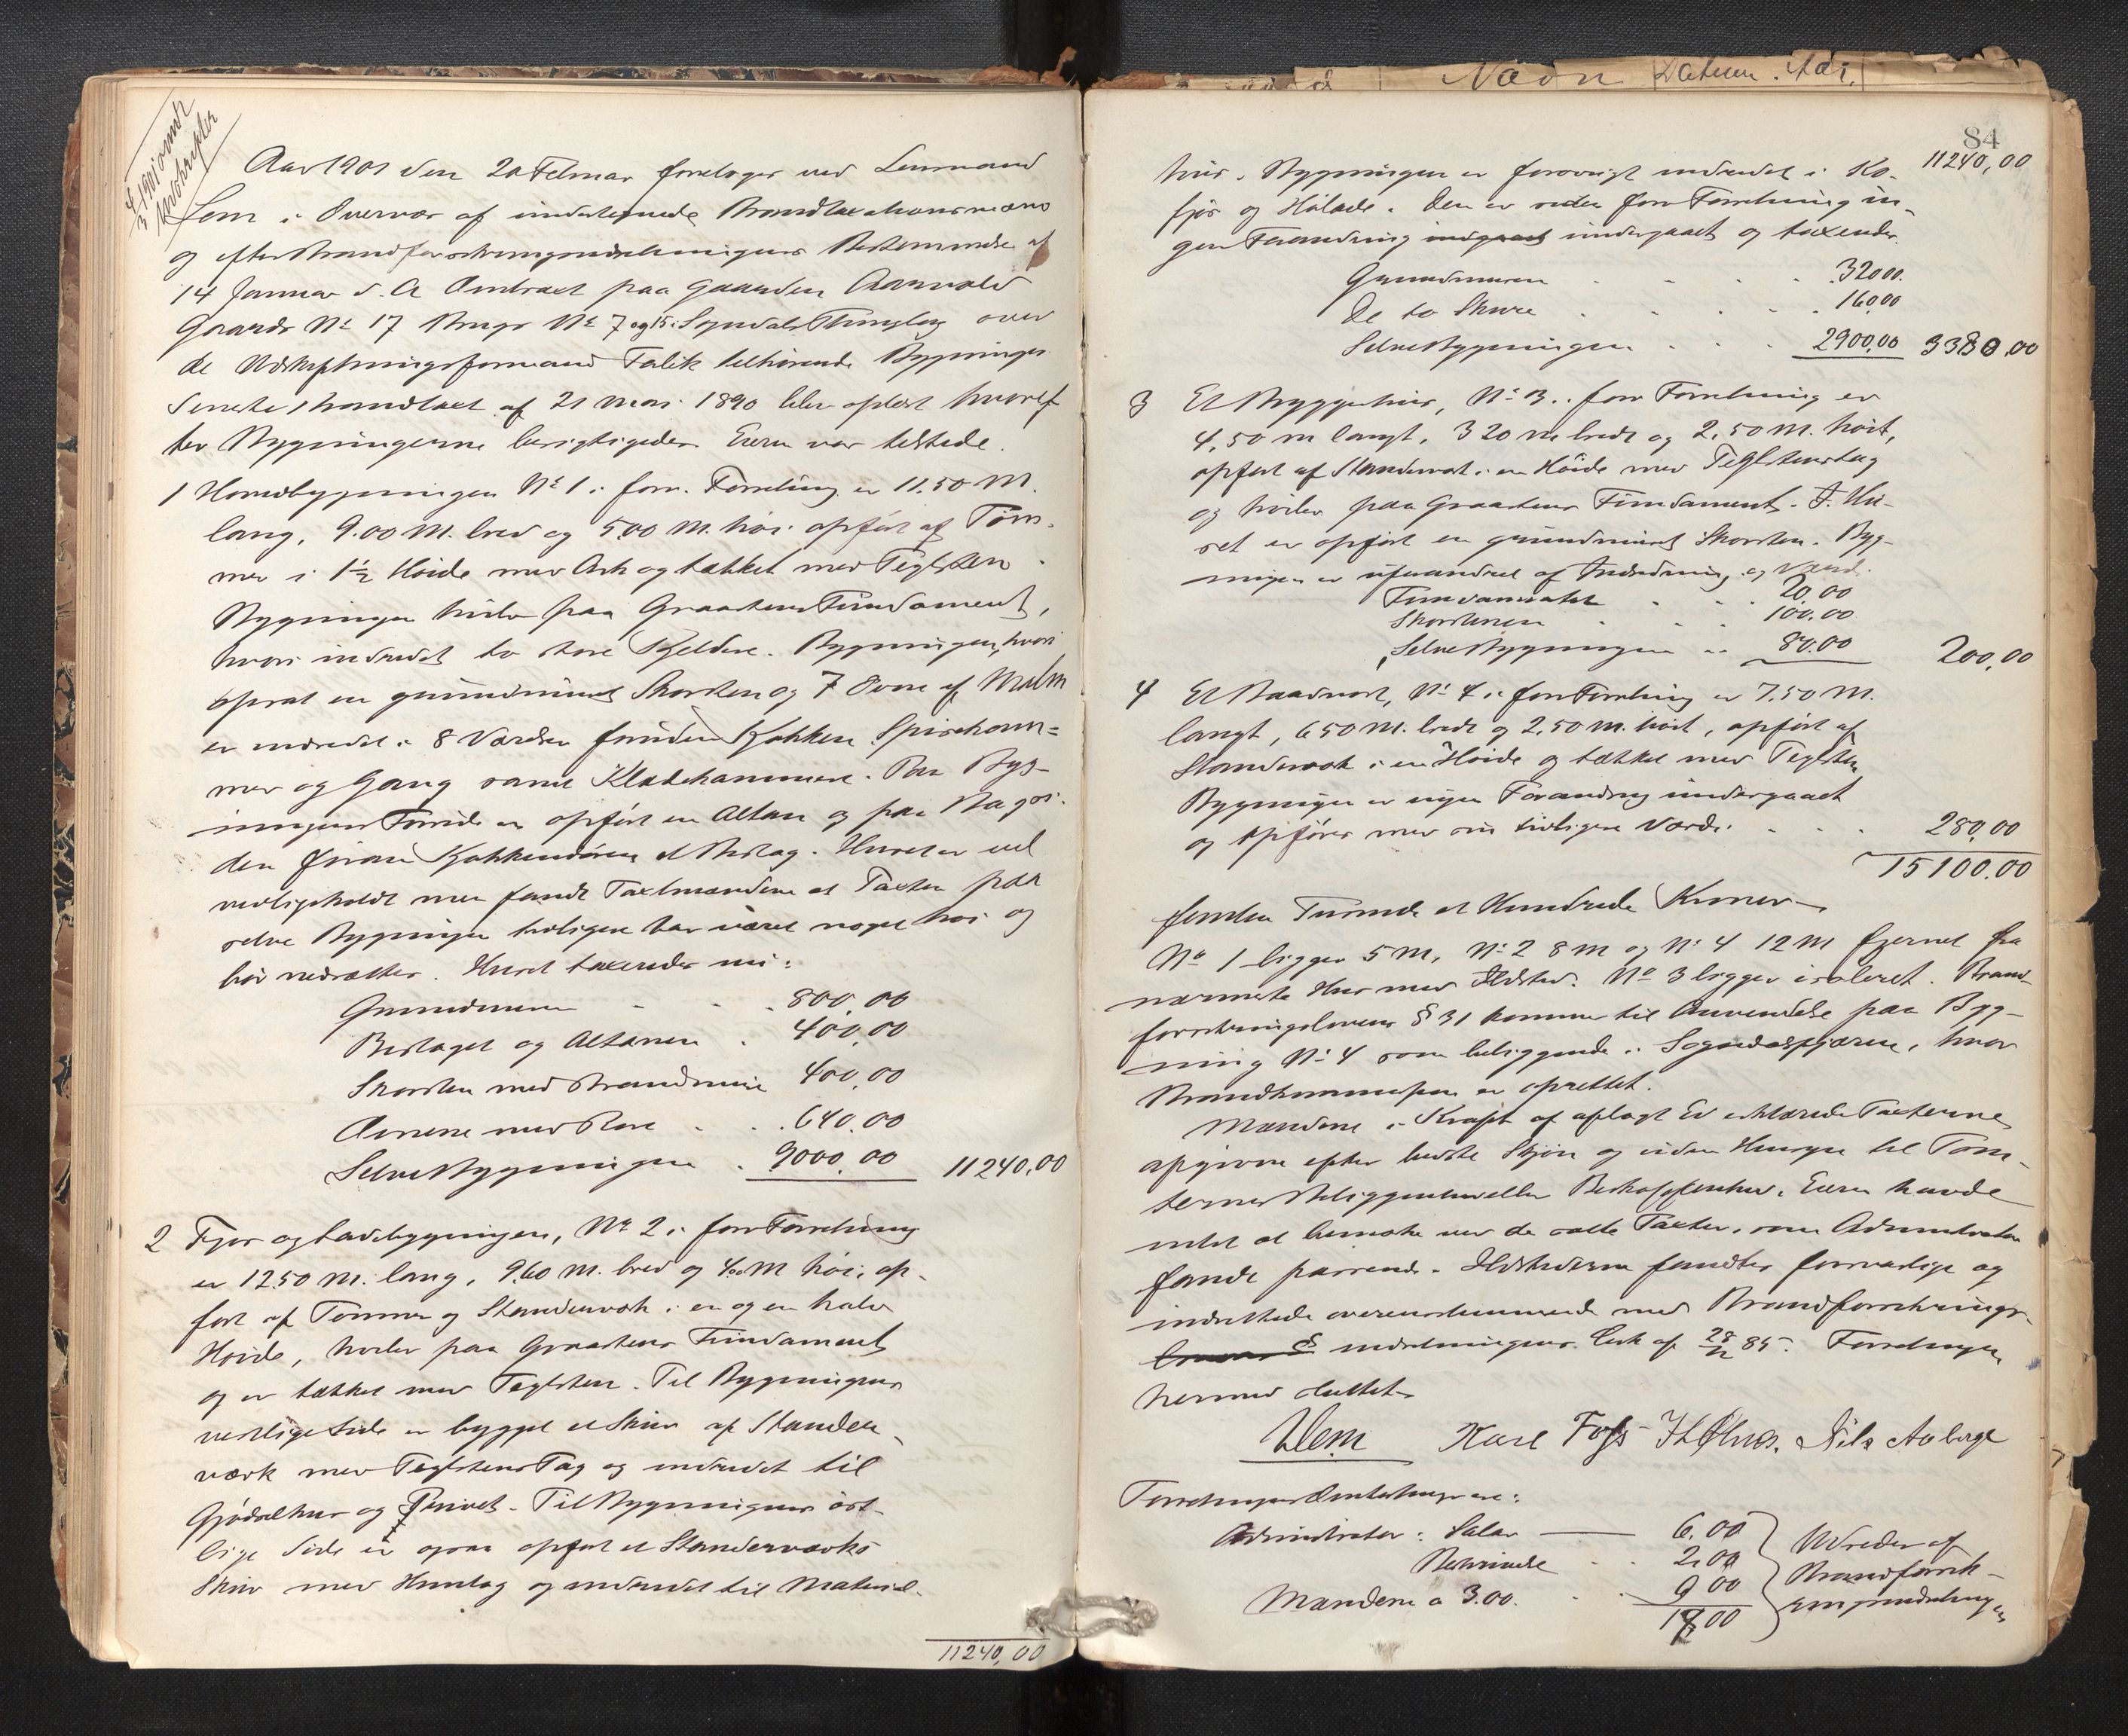 4/3 1901 sendt
Udskrifter
Aar 1901 den 20 Februar foretoges ved Lensmand
Lem i Overvær af undertegnede Brandtaxationsmænd
og efter Brandforsikringsindretningens Bestemmelse af
14 Januar d. A Omtaxt paa Gaarden Aaavold
Gaards No 17 Brugs No 7 og 15 i Sogndals Thinglag over
de Udskiftningsformand Falik tilhørende Bygninger
Seneste Brandtaxt af 21 Mai 1890 blev oplæst hvoref
ter Bygningerne besigtigedes. Eieren var tilstede.
1 Hovedbygningen No 1 i forr. Forretning er 11.50 M.
lang, 9.00 M. bred og 5.00 M. høi opført af Tøm-
mer i 1½ Høide med Ark og tækket med Teglsten.
Bygningen hviler paa Graastens Fundament,
hvori indredet to store Kjeldere. Bygningen, hvori
opsat en grundmuret Skorsten og 7 Ovne af Malm
er indredet i 8 Værelser foruden Kjøkken Spisekam=
mer og Gang samt Klædekammere. Paa Byg-
ningens Forside er opført en Altan og paa Bagsi-
den foran Kjøkkendøren et Bislag. Huset er vel
vedligeholdt men fandt Taxtmændene at Taxten paa
selve Bygningen tidligere har været noget høi og
bør nedsættes. Huset taxeredes nu:
Grundmuren - - 800.00
Bislaget og Altanen . 400.00
Skorsten med Brandmure 400.00
Ovnene med Rør . . 640.00
Selve Bygningen . 9000.00 11240.00
2 Fjøs og Ladebygningen, No 2 i forr Forretning
er 12.50 M. lang, 9.60 M. bred og 4.00 M høi, op-
ført af Tømmer og Standerværk i en og en halv
Høide, hviler paa Graastens Fundament
og er tækket med Teglsten. Til Bygningens
vestlige Side er bygget et Skur af Stander-
værk med Teglstens Tag og indredet til
Gjødselhus og Privet. Til Bygningens øst-
lige Side er ogsaa opført et Standerværks
Skur med Huntag og indredet til Material-
11240,00
Navn Datum. Aar.
84
11240,00
hus. Bygningen er forøvrigt indredet i Ko-
fjøs og Hølade. Den er siden forr Forretning in-
gen Forandring indgaaet undergaaet og taxeredes
Grundmuren . - - . 320.00.
De to Skure . . . . 160.00
Selve Bygningen . . . 2900.00 3380.00
3 Et Bryggehus, No 3 i forr Forretning er
4,50 m langt, 3 20 m bredt og 2,50 M. høit,
opført af Standerværk i en Høide med Teglstenstag
og hviler paa Graastens Fundament. I Hu-
set er opført en grundmuret Skorsten. Byg-
ningen er uforandret af Indredning og Værdi.
Fundamentet . . . 20.00
Skorstenen . . . 100.00
Selve Bygningen .. 80.00 200,00
4 Et Baadnøst, No 4 i forr Forretning er 7.50 M.
langt, 6 50 M. bredt og 2,50 M. høit, opført af
Standerværk i en Høide og tækket med Teglsten
Bygningen er ingen Forandring undergaaet
og opføres med sin tidligere Værdi. . . . 280,00
15100.00
femten Tusinde et Hundrede Kroner
No 1 ligger 5 M, No 2 8 M og No 4 12 M fjernet fra
nærmeste Hus med Ildsted. No 3 ligger isoleret. Brand-
forsikringslovens § 31 kommer til Anvendelse paa Byg-
ning No 4 som beliggende i Sogndalsfjæren, hvor
Brandkommission er oprettet.
Mændene i Kraft af aflagt Ed erklærede Taxterne
afgivne efter bedste Skjøn og uden Hensyn til Tom-
ternes Beliggenhed eller Beskaffenhed. Eieren havde
intet at bemærke ved de satte Taxter, som Administrator
fandt passende. Ildstederne fandtes forsvarlige og
indrettede overensstemmende med Brandforsikrings-
lovens § indretningens Cirk af 28/12 85. Forretningen
hermed sluttet.
Lem Karl Foss Nils Aaberge
Forretningens Omkostninger ere:
Administrator: Salær — 6.00
Beskrivelse . . 2.00
Mændene a 3.00. . . 9 00
18,00
Udredes af
Brandforsik-
ringsindretningen